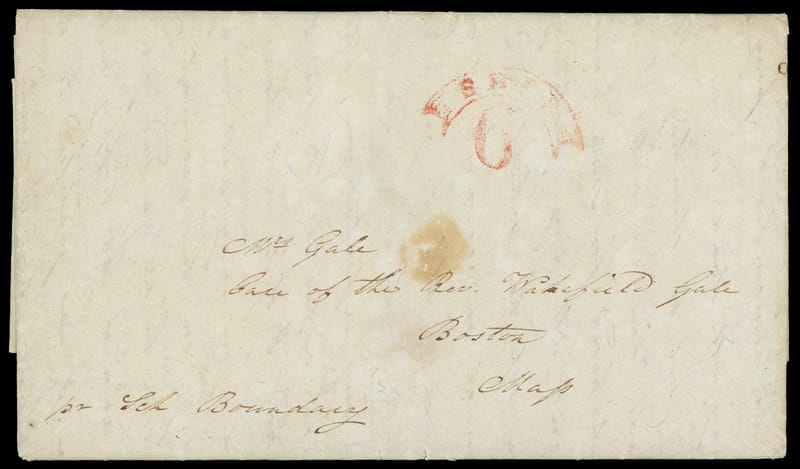 SHIP
6
Mrs Gale
Care of the Rev. Wakefield Gale
Boston
Mass
pr Sch Boundary